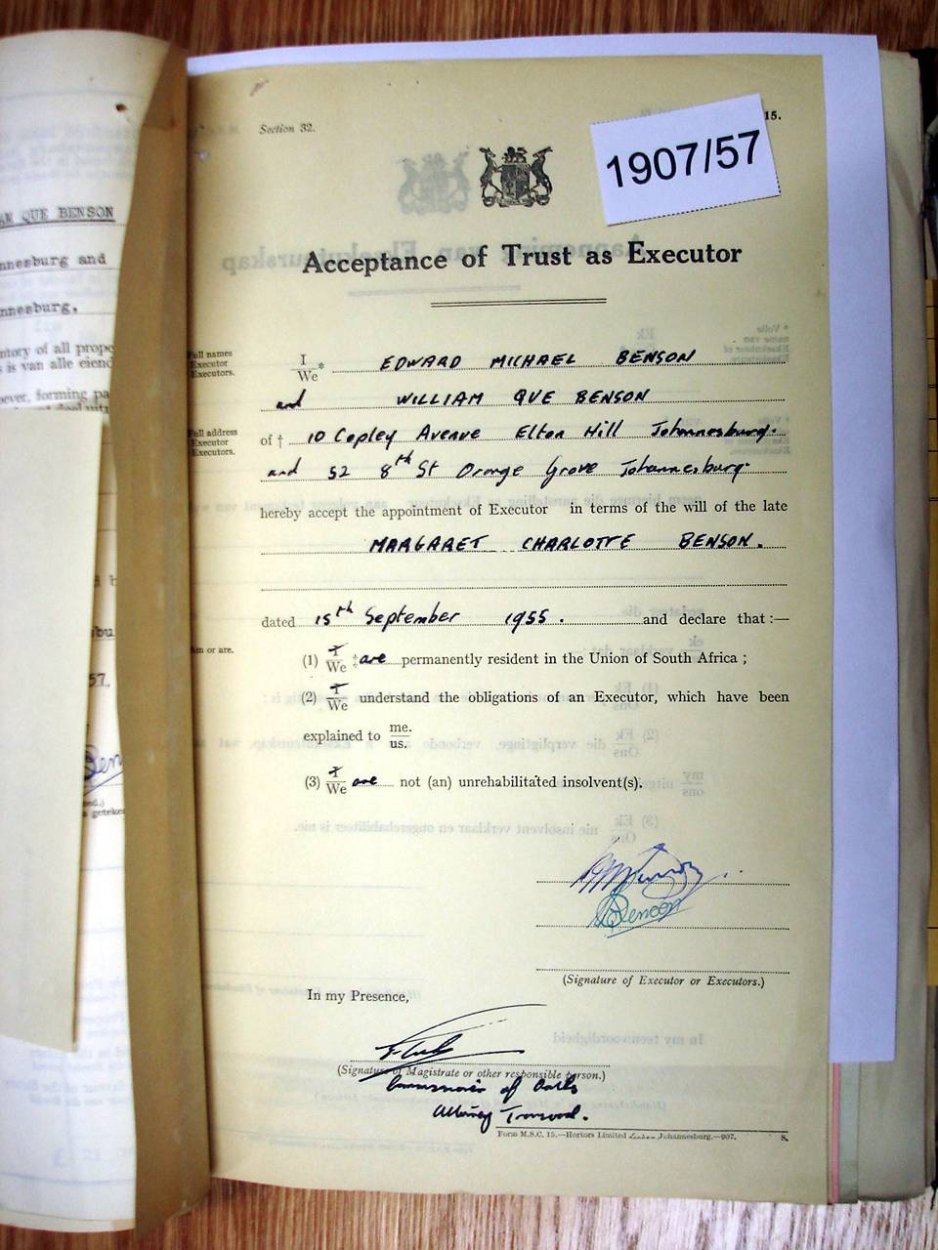 AN QUE BENSON
nnesburg and
nnesburg,
ntory of all prope
s is van alle eiend
oever, forming pa
57,
Section 32.
15.
1907/57
Acceptance of Trust as Executor
Full names
Executor
Executors.
I
We* EDWARD MICHAEL BENSON
and WILLIAM QUE BENSON
Full address
Executor
Executors.
of † 10 Copley Avenue Elton Hill Johannesburg.
and 52 8th St Orange Grove Johannesburg.
hereby accept the appointment of Executor in terms of the will of the late
MARGARET CHARLOTTE BENSON.
dated 15th September 1955. and declare that :—
Am or are.
(1) I
We ‡ are permanently resident in the Union of South Africa ;
(2) I
We understand the obligations of an Executor, which have been
explained to me.
us.
(3) I
We are not (an) unrehabilitated insolvent(s).
Benson
(Signature of Executor or Executors.)
In my Presence,
(Signature of Magistrate or other responsible person.)
Commissioner of Oaths
Attorney Transvaal.
Form M.S.C. 15.—Hortors Limited Johannesburg.—907. S.